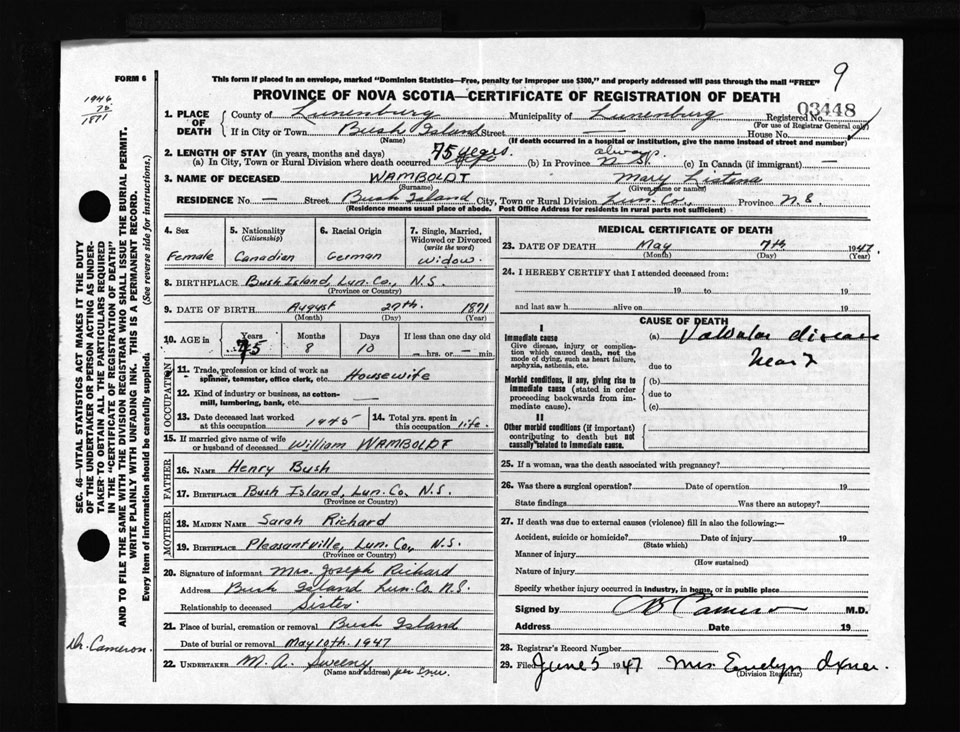 FORM 6
This form if placed in an envelope, marked "Dominion Statistics—Free, penalty for improper use $300," and properly addressed will pass through the mail "FREE"
9
PROVINCE OF NOVA SCOTIA—CERTIFICATE OF REGISTRATION OF DEATH
03448
1946
75
1871
1. PLACE OF DEATH
County of Lunenburg Municipality of Lunenburg Registered No.
(For use of Registrar General only)
If in City or Town Bush Island Street — House No.
(Name) (If death occurred in hospital or institution, give its name instead of street and number)
2. LENGTH OF STAY (in years, months and days)
(a) In City, Town or Rural Division where death occurred 75 years. (b) In Province always N.S. (c) In Canada (if immigrant) —
3. NAME OF DECEASED WAMBOLDT Mary Listena
(Surname) (Given name or names)
RESIDENCE No. — Street Bush Island City, Town or Rural Division Lun. Co., Province N.S.
(Residence means usual place of abode. Post Office Address for residents in rural parts not sufficient)
4. Sex
Female
5. Nationality
(Citizenship)
Canadian
6. Racial Origin
German
7. Single, Married, Widowed or Divorced
(write the word)
Widow.
8. BIRTHPLACE Bush Island, Lun. Co., N.S.
(Province or Country)
9. DATE OF BIRTH August 27th. 1871
(Month) (Day) (Year)
10. AGE in Years Months Days If less than one day
75 8 10 — hrs. or — min.
OCCUPATION
11. Trade, profession or kind of work as spinner, teamster, office clerk, etc. Housewife
12. Kind of industry or business, as cotton-mill, lumbering, bank, etc. —
13. Date deceased last worked at this occupation 1945
14. Total yrs. spent in this occupation life.
15. If married give name of wife or husband of deceased William WAMBOLDT
FATHER
16. NAME Henry Bush
17. BIRTHPLACE Bush Island, Lun. Co., N.S.
(Province or Country)
MOTHER
18. MAIDEN NAME Sarah Richard
19. BIRTHPLACE Pleasantville, Lun. Co., N.S.
(Province or Country)
20. Signature of informant Mrs. Joseph Richard
Address Bush Island Lun. Co. N.S.
Relationship to deceased Sister
21. Place of burial, cremation or removal Bush Island
Date of burial or removal May 10th. 1947
22. UNDERTAKER M. A. Sweeny
(Name and address)
MEDICAL CERTIFICATE OF DEATH
23. DATE OF DEATH May 7th 1947
(Month) (Day) (Year)
24. I HEREBY CERTIFY that I attended deceased from:
19 to 19
and last saw h alive on 19
CAUSE OF DEATH
I
Immediate cause
Give disease, injury or complication which caused death, not the mode of dying, such as heart failure, asphyxia, asthenia, etc.
(a) Valvular disease
heart
due to
Morbid conditions, if any, giving rise to immediate cause (stated in order proceeding backwards from immediate cause).
(b)
due to
(c)
II
Other morbid conditions (if important) contributing to death but not causally related to immediate cause.
25. If a woman, was the death associated with pregnancy?
26. Was there a surgical operation? Date of operation 19
State findings Was there an autopsy?
27. If death was due to external causes (violence) fill in also the following:—
Accident, suicide or homicide? Date of injury 19
(State which)
Manner of injury
(How sustained)
Nature of injury
Specify whether injury occurred in industry, in home, or in public place
Signed by Cameron M.D.
Address Date 19
28. Registrar's Record Number
29. Filed June 5 1947 Mrs Evelyn Oxner.
(Division Registrar)
SEC. 46—VITAL STATISTICS ACT MAKES IT THE DUTY
OF THE UNDERTAKER OR PERSON ACTING AS UNDER-
TAKER TO OBTAIN ALL THE PARTICULARS REQUIRED
IN THE "CERTIFICATE OF REGISTRATION OF DEATH"
AND TO FILE THE SAME WITH THE DIVISION REGISTRAR WHO SHALL ISSUE THE BURIAL PERMIT.
WRITE PLAINLY WITH UNFADING INK. THIS IS A PERMANENT RECORD.
Every item of information should be carefully supplied. (See reverse side for instructions.)
Dr. Cameron.